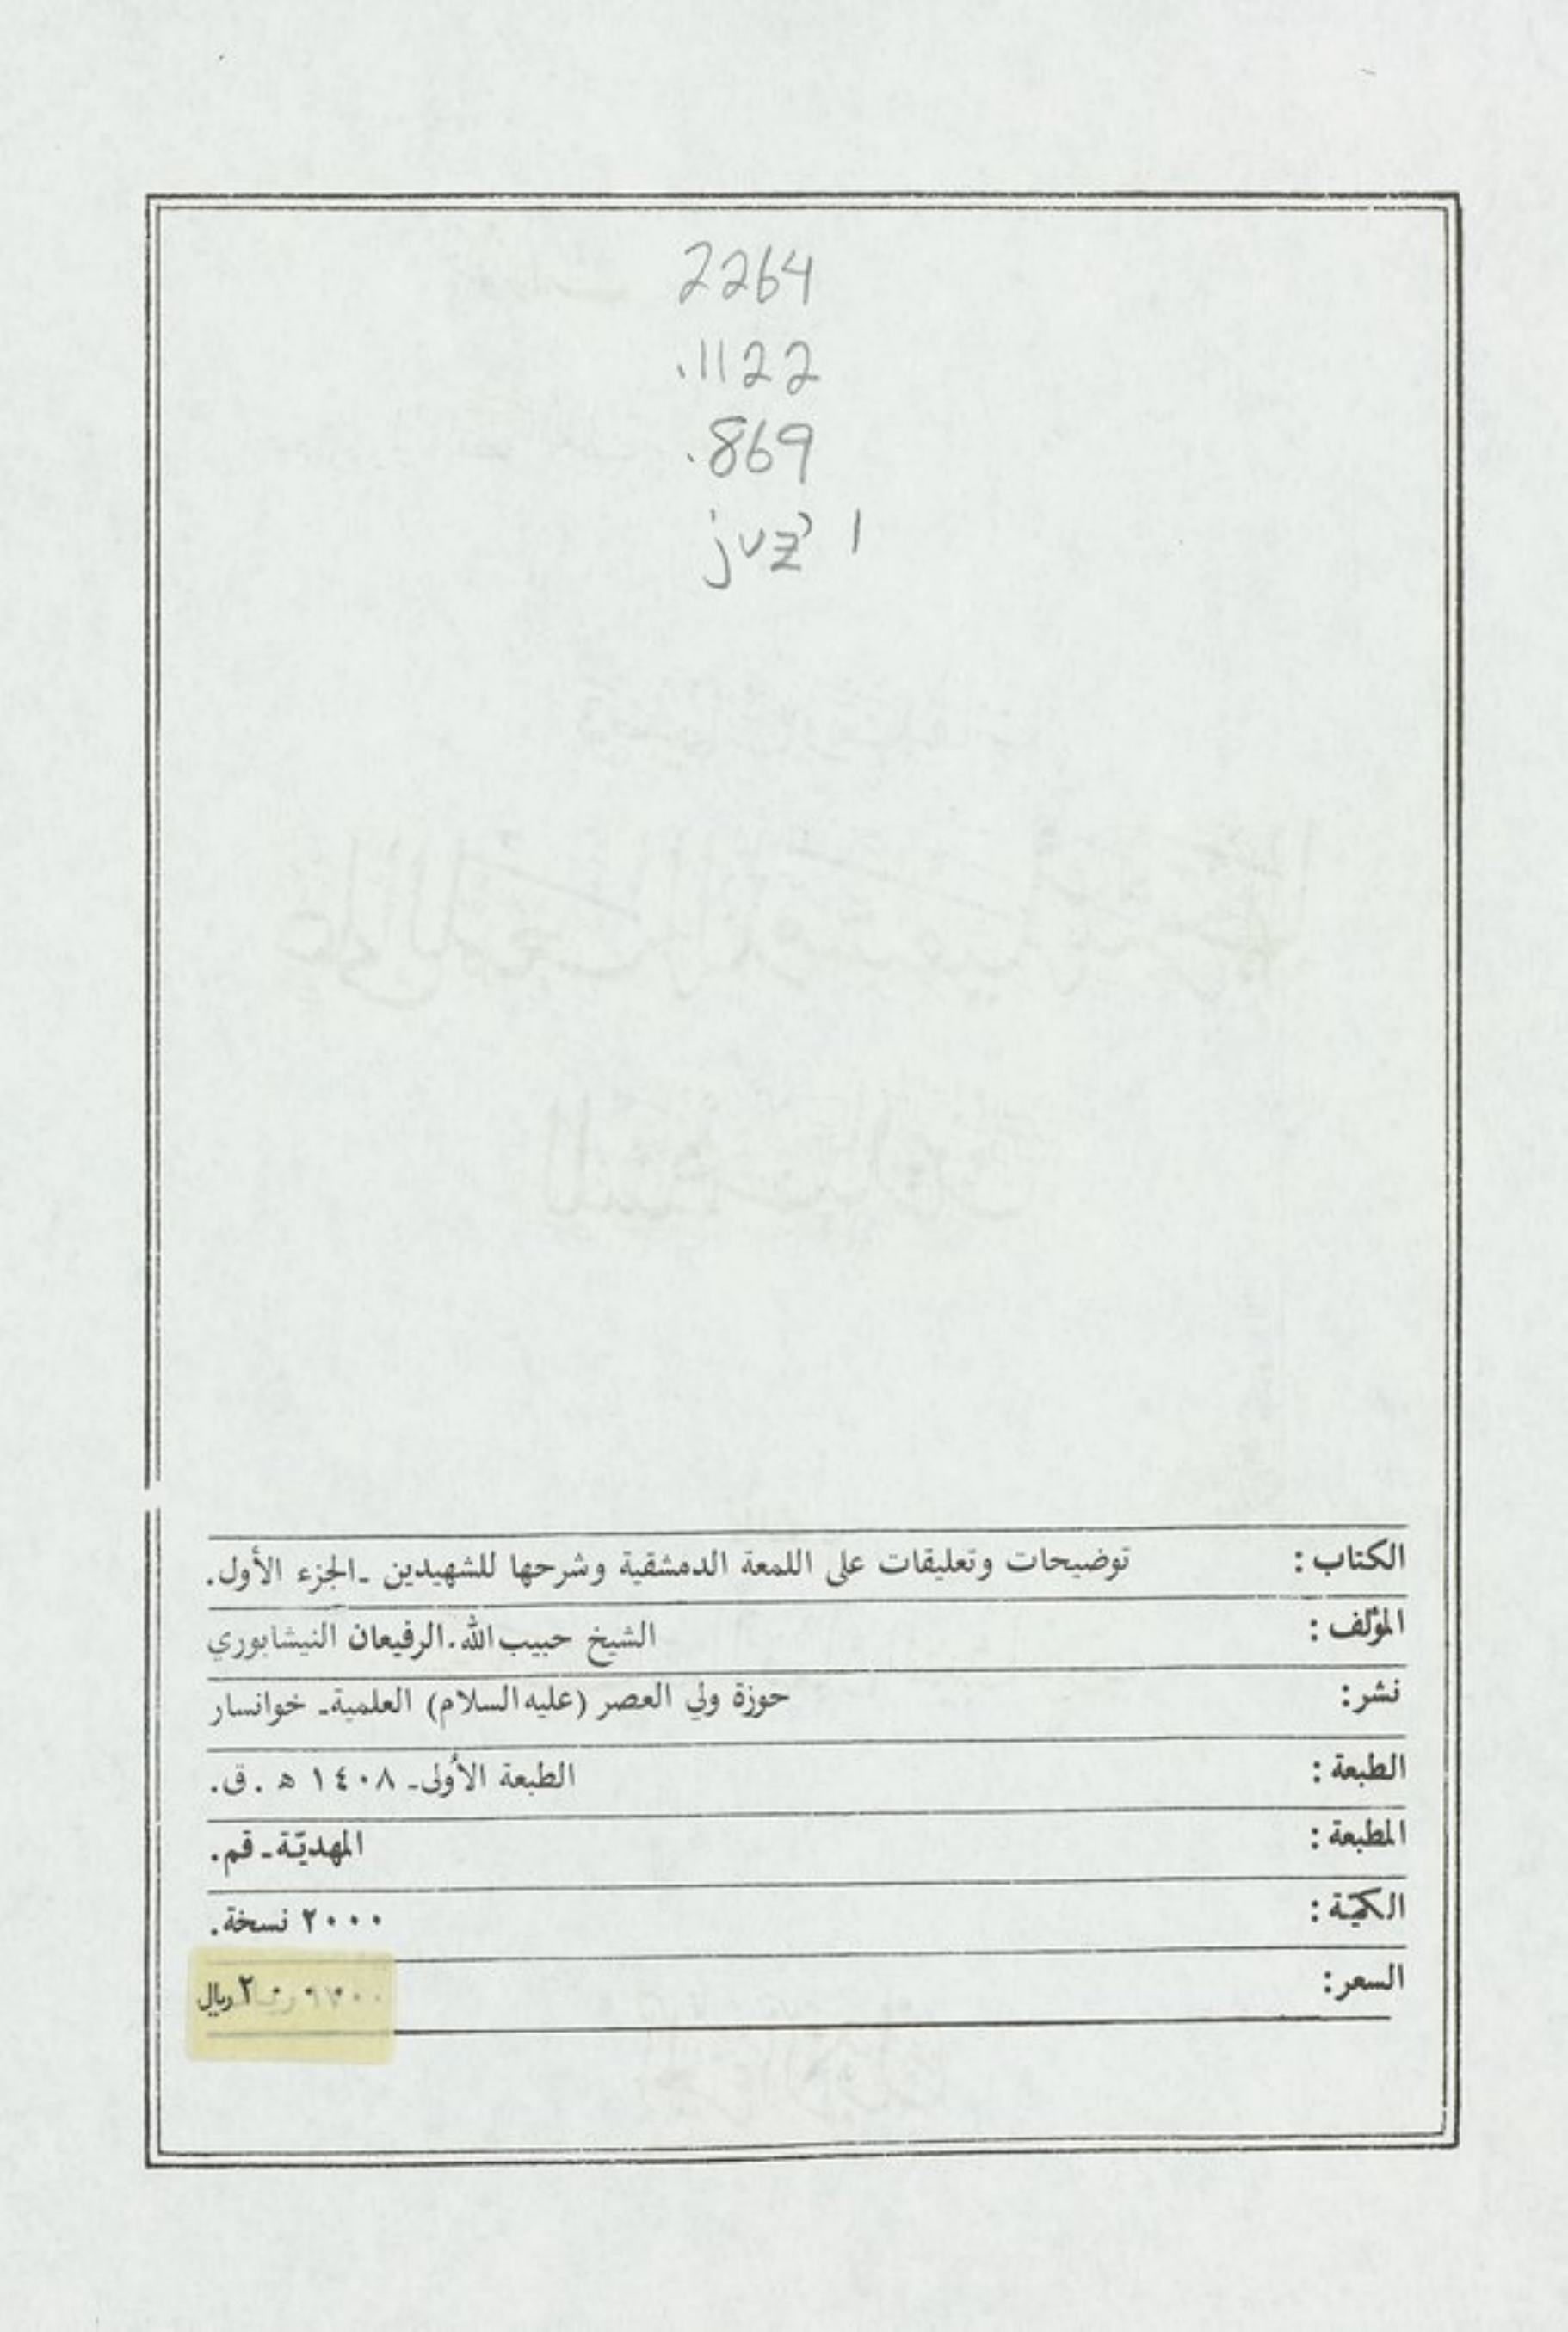 2264
.1122
.869
juz' 1
الكتاب : توضيحات وتعليقات على اللمعة الدمشقية وشرحها للشهيدين ـ الجزء الأول.
المؤلف : الشيخ حبيب الله.الرفيعان النيشابوري
نشر: حوزة ولي العصر (عليه السلام) العلمية ـ خوانسار
الطبعة : الطبعة الأولى ـ ١٤٠٨ ه . ق.
المطبعة : المهديّة ـ قم.
الكميّة : ٢٠٠٠ نسخة.
السعر: ريال